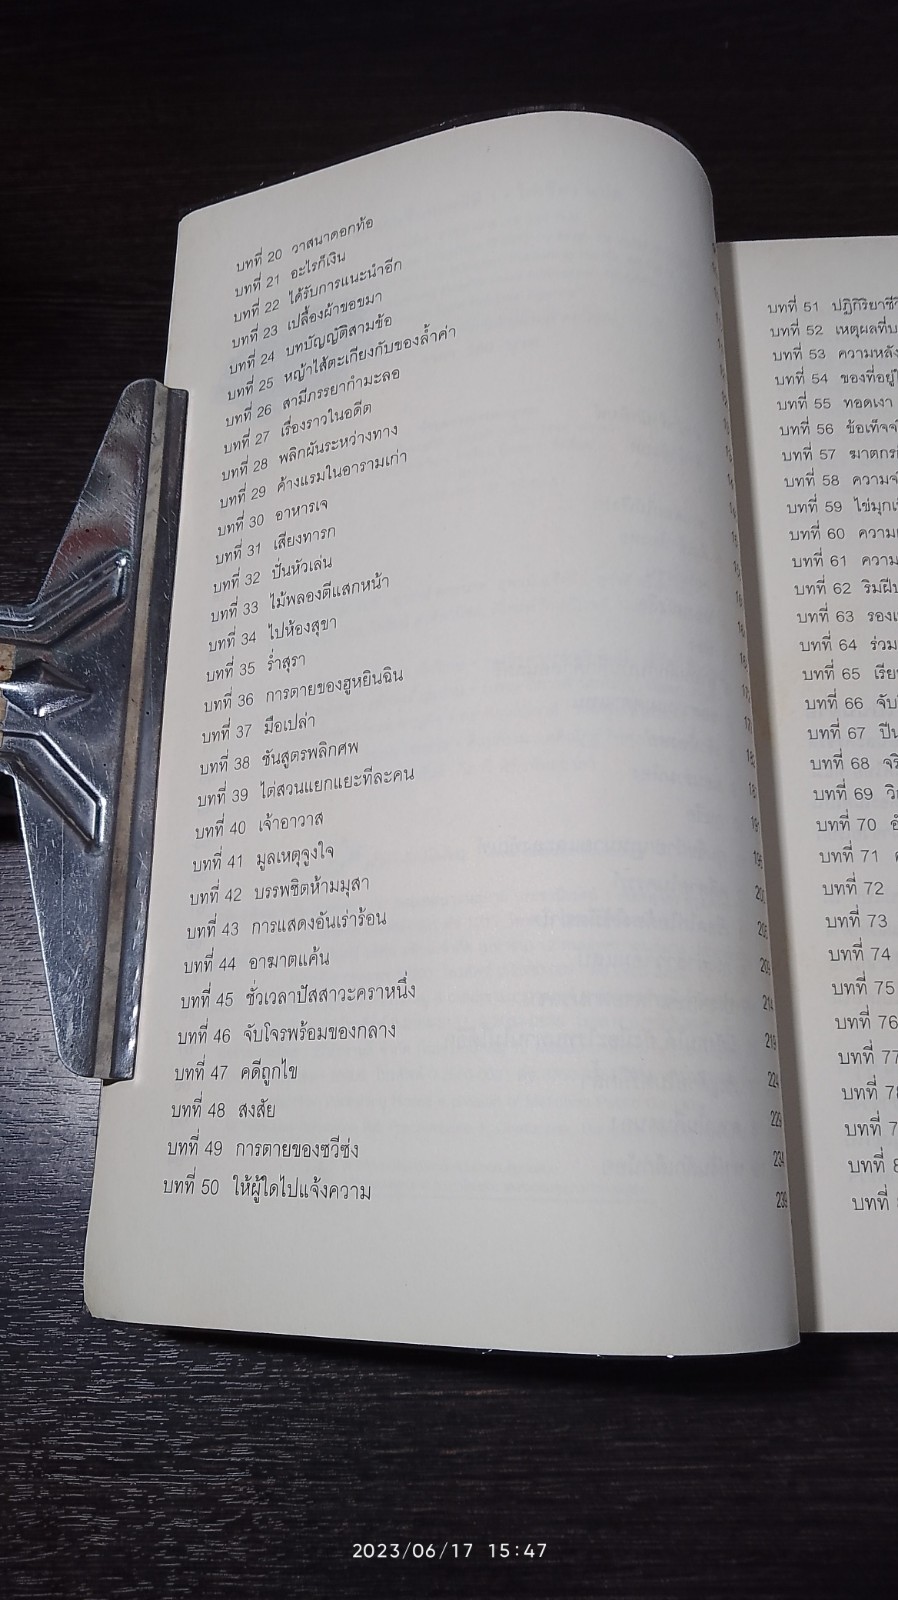 บทที่ 20 วาสนาดอกท้อ
บทที่ 21 อะไรก็เงิน
บทที่ 22 ได้รับการแนะนำอีก
บทที่ 23 เปลื้องผ้าขอขมา
บทที่ 24 บทบัญญัติสามข้อ
บทที่ 25 หญ้าไส้ตะเกียงกับของล้ำค่า
บทที่ 26 สามีภรรยากำมะลอ
บทที่ 27 เรื่องราวในอดีต
บทที่ 28 พลิกผันระหว่างทาง
บทที่ 29 ค้างแรมในอารามเก่า
บทที่ 30 อาหารเจ
บทที่ 31 เสียงทารก
บทที่ 32 ปั่นหัวเล่น
บทที่ 33 ไม้พลองตีแสกหน้า
บทที่ 34 ไปห้องสุขา
บทที่ 35 ร่ำสุรา
บทที่ 36 การตายของฮูหยินฉิน
บทที่ 37 มือเปล่า
บทที่ 38 ชันสูตรพลิกศพ
บทที่ 39 ไต่สวนแยกแยะทีละคน
บทที่ 40 เจ้าอาวาส
บทที่ 41 มูลเหตุจูงใจ
บทที่ 42 บรรพชิตห้ามมุสา
บทที่ 43 การแสดงอันเร่าร้อน
บทที่ 44 อาฆาตแค้น
บทที่ 45 ชั่วเวลาปัสสาวะคราหนึ่ง
บทที่ 46 จับโจรพร้อมของกลาง
บทที่ 47 คดีถูกไข
บทที่ 48 สงสัย
บทที่ 49 การตายของซวีซ่ง
บทที่ 50 ให้ผู้ใดไปแจ้งความ
200
205
209
214
219
224
229
234
239
บทที่ 51
บทที่ 52
บทที่ 53 ความหลัง
บทที่ 54 ของที่อยู่
บทที่ 55 ทอดเงา
บทที่ 56
บทที่ 57
บทที่ 58
บทที่ 59 ไข่มุก
บทที่ 60
บทที่ 61 ความ
บทที่ 62
บทที่ 63
บทที่ 64 ร่วม
บทที่ 65
บทที่ 66
บทที่ 67
บทที่ 68
บทที่ 69
บทที่ 70
บทที่ 71
บทที่ 72
บทที่ 73
บทที่ 74
บทที่ 75
บทที่ 76
บทที่ 77
บทที่
บทที่
บทที่
บทที่
2023/06/17 15:47